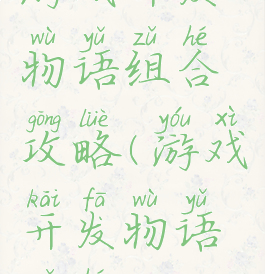 wù yǔ zǔ hé
物语组合
gōng lüè yóu xì
攻略(游戏
kāi fā wù yǔ
开发物语